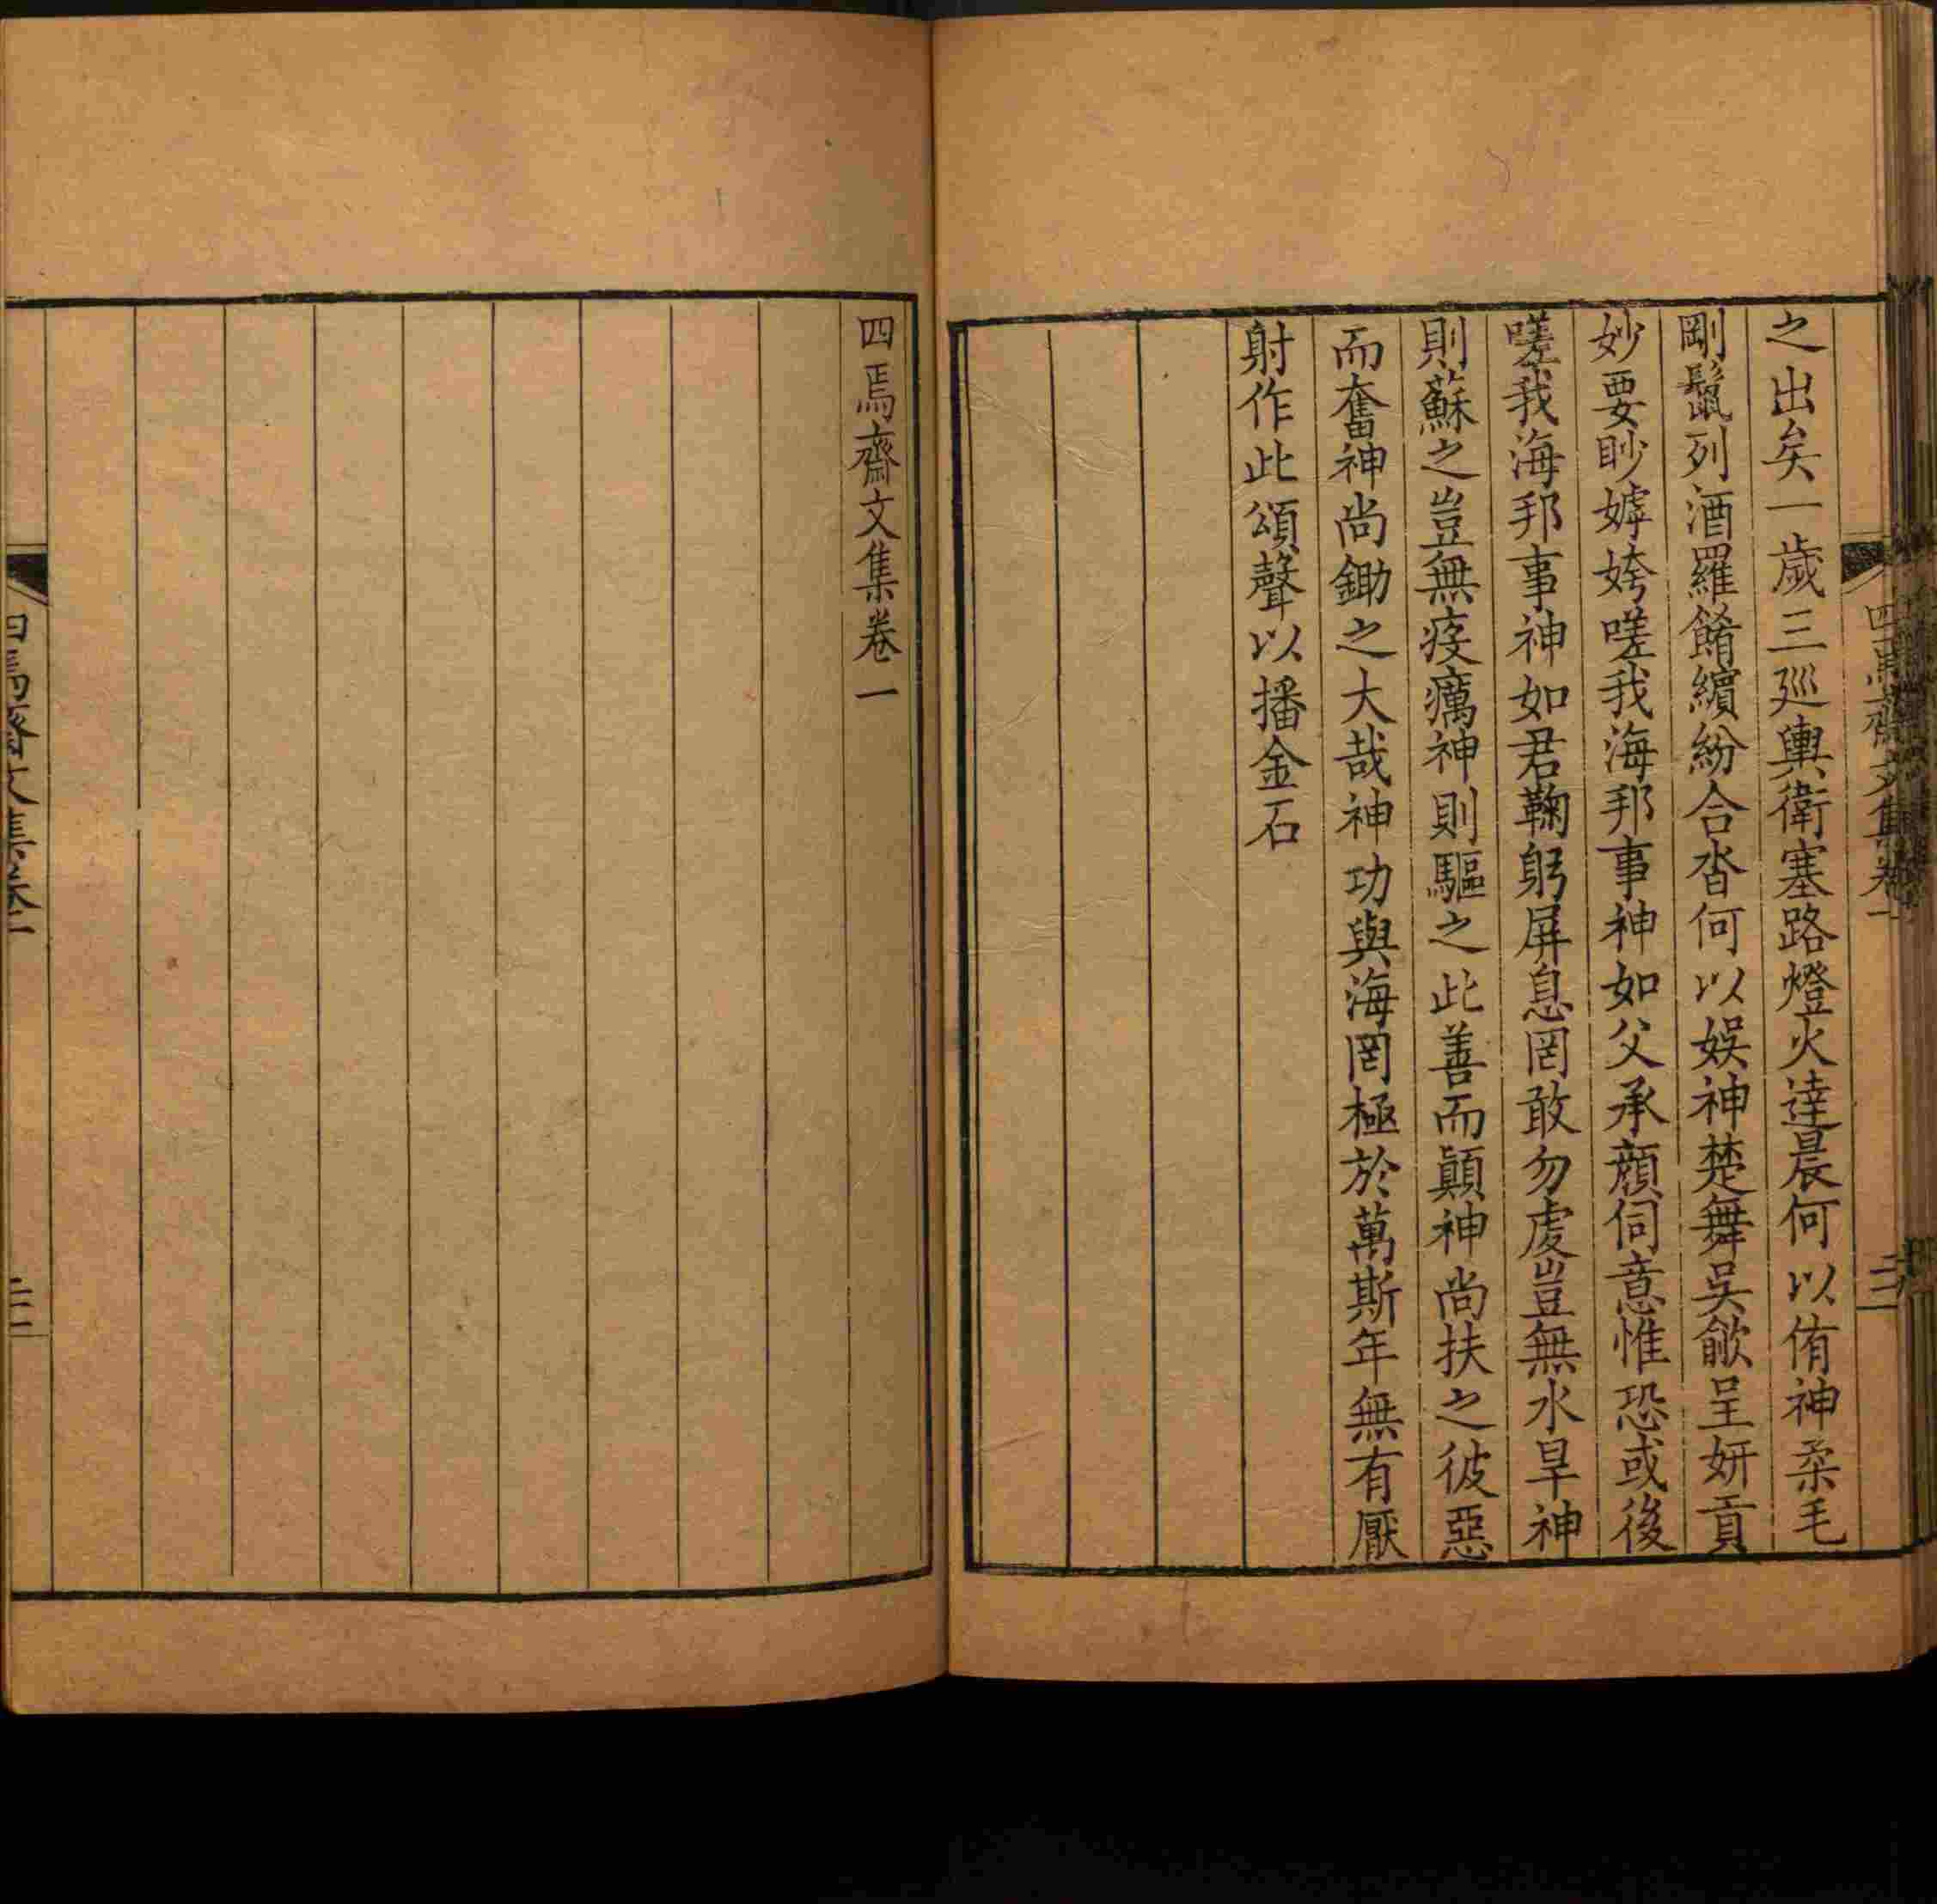 四焉齋文集卷一
之出矣一歲三廵輿衛塞路燈火達晨何以侑神柔毛
剛鬛列酒羅餚繽紛合沓何以娛神楚舞吳歈呈妍貢
妙要眇嫭姱嗟我海邦事神如父承顔伺意惟恐或後
嗟我海邦事神如君鞠躬屏息罔敢勿虔豈無水旱神
則蘇之豈無疫癘神則驅之此善而顚神尚扶之彼惡
而奮神尚鋤之大哉神功與海罔極於萬斯年無有厭
射作此頌聲以播金石
四焉齋文集卷一
四焉齋文集卷一